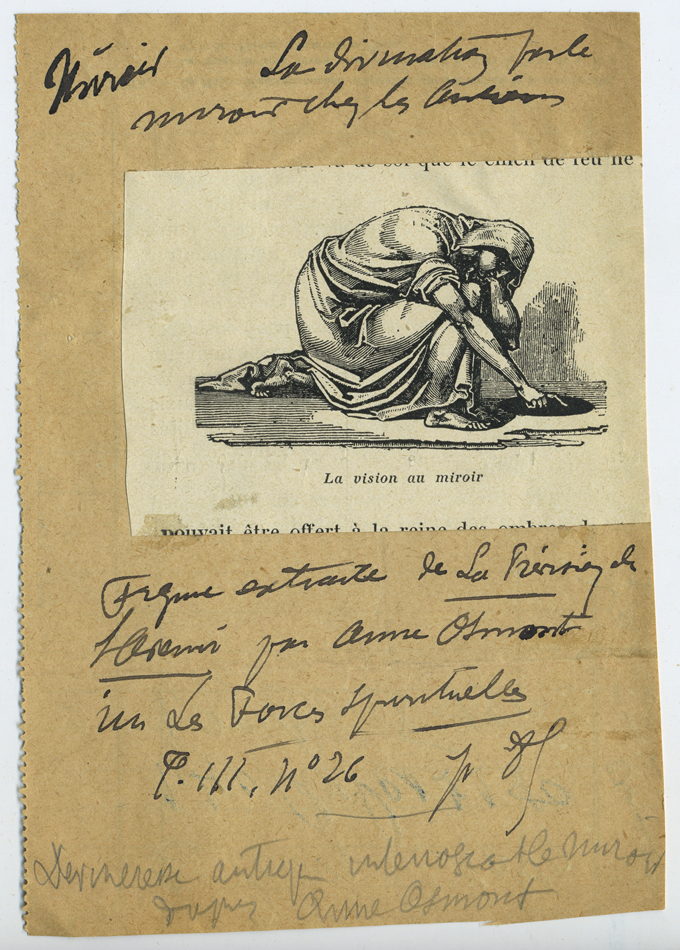 Miroir
La divination par le
miroir chez les Anciens
il va de soi que le chien de feu ne
La vision au miroir
pouvait être offert à la reine des ombres
Figure extraite de La Prévision de
l'Avenir par Anne Osmont
in Les Forces Spirituelles
T. III, N° 26 p
Devineresse antique interrogeant le Miroir
d'après Anne Osmont